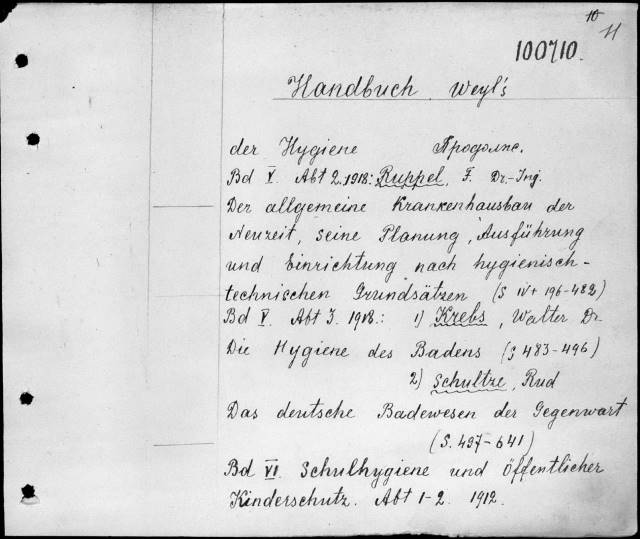 10
11
100710.
Handbuch Weyl's
der Hygiene Продолж.
Bd V. Abt 2. 1918: Ruppel, F. Dr.-Ing.
Der allgemeine Krankenhausbau der
Neuzeit, seine Planung, Ausführung
und Einrichtung nach hygienisch-
technischen Grundsätzen (S IV + 196-482)
Bd V. Abt 3. 1918: 1) Krebs, Walter Dr.
Die Hygiene des Badens (S 483-496)
2) Schultze, Rud
Das deutsche Badewesen der Gegenwart
(S. 497-641)
Bd VI. Schulhygiene und öffentlicher
Kinderschutz. Abt 1-2. 1912.